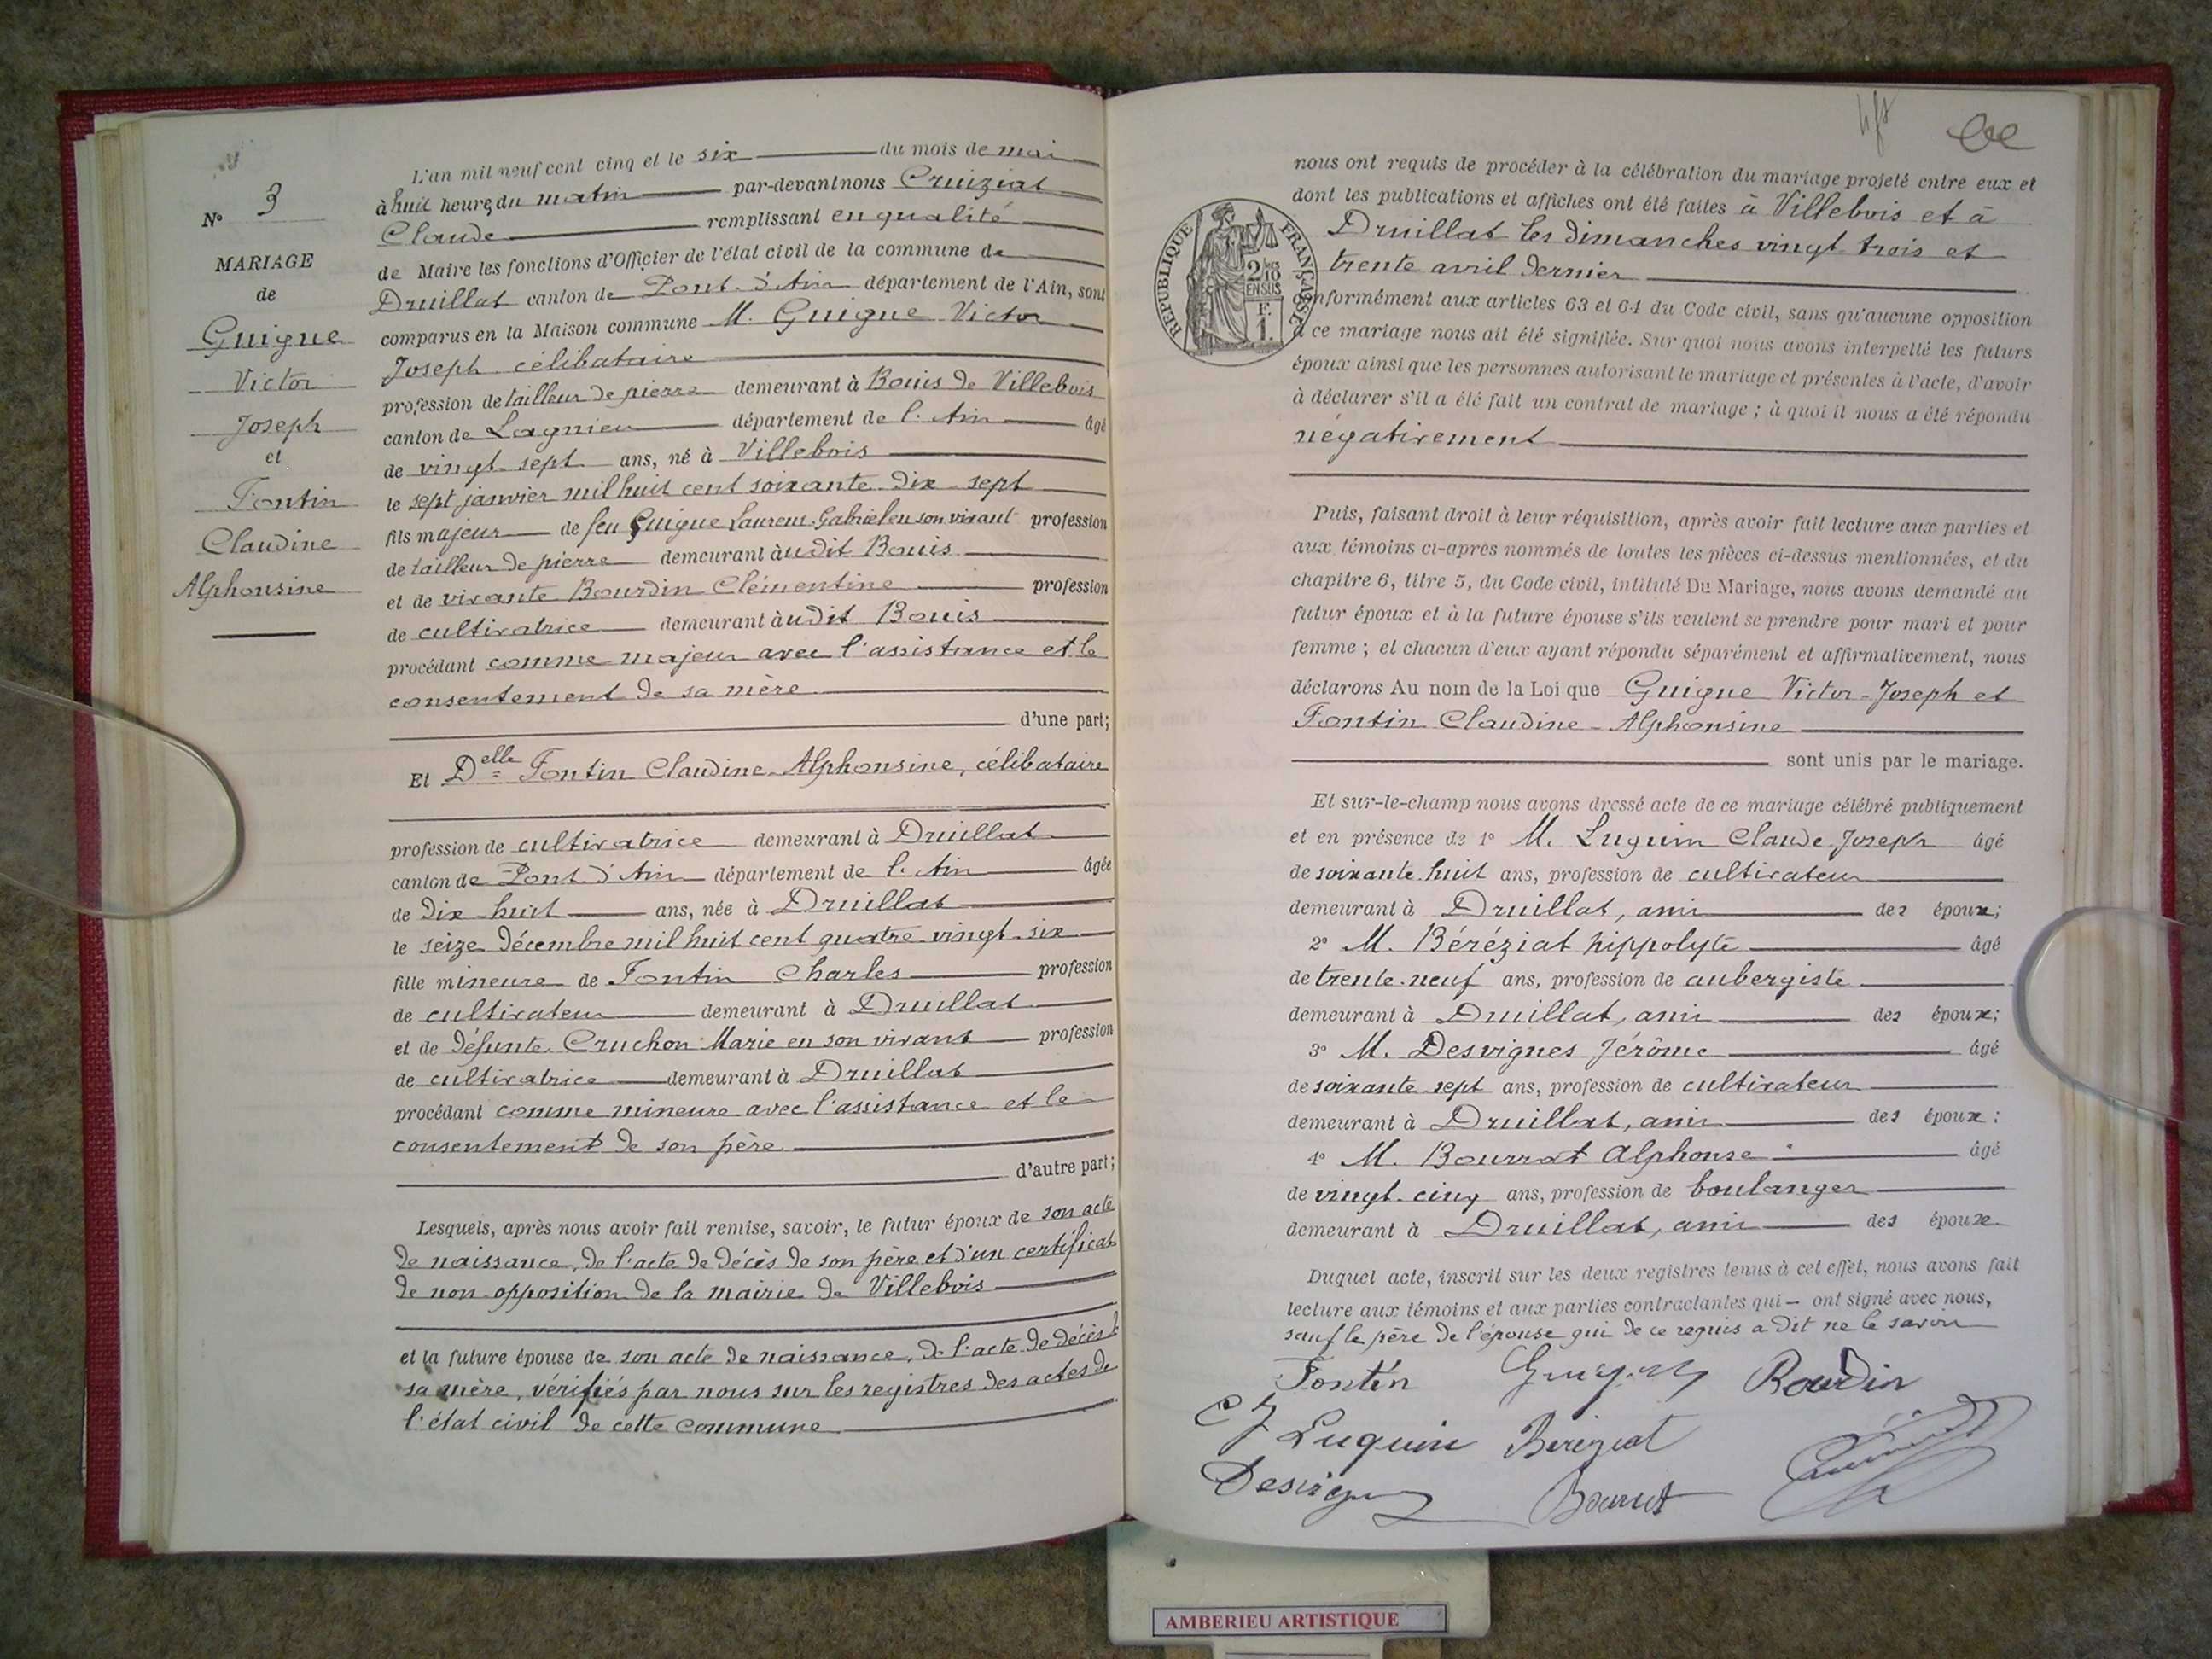 N° 3
MARIAGE
de
Guigue
Victor
Joseph
et
Fontin
Claudine
Alphonsine
L'an mil neuf cent cinq et le six du mois de mai
à huit heures du matin par-devant nous Cruiziat
Claude remplissant en qualité
de Maire les fonctions d'Officier de l'état civil de la commune de
Druillat canton de Pont-d'Ain département de l'Ain, sont
comparus en la Maison commune M. Guigue Victor
Joseph célibataire
profession de tailleur de pierre demeurant à Bouis de Villebois
canton de Lagnieu département de l'Ain âgé
de vingt-sept ans, né à Villebois
le sept janvier mil huit cent soixante-dix-sept
fils majeur de feu Guigue Laurent-Gabriel en son vivant profession
de tailleur de pierre demeurant àudit Bouis
et de vivante Bourdin Clémentine profession
de cultivatrice demeurant àudit Bouis
procédant comme majeur avec l'assistance et le
consentement de sa mère
d'une part;
Et Delle Fontin Claudine-Alphonsine, célibataire
profession de cultivatrice demeurant à Druillat
canton de Pont-d'Ain département de l'Ain âgée
de dix-huit ans, née à Druillat
le seize décembre mil huit cent quatre-vingt-six
fille mineure de Fontin Charles profession
de cultivateur demeurant à Druillat
et de défunte Cruchon Marie en son vivant profession
de cultivatrice demeurant à Druillat
procédant comme mineure avec l'assistance et le
consentement de son père
d'autre part;
Lesquels, après nous avoir fait remise, savoir, le futur époux de son acte
de naissance, de l'acte de décès de son père et d'un certificat
de non-opposition de la mairie de Villebois
et la future épouse de son acte de naissance, de l'acte de décès de
sa mère, vérifiés par nous sur les registres des actes de
l'état civil de cette commune
nous ont requis de procéder à la célébration du mariage projeté entre eux et
dont les publications et affiches ont été faites à Villebois et à
Druillat les dimanches vingt-trois et
trente avril dernier
RÉPUBLIQUE FRANÇAISE
2/10 EN SUS
F. 1.
conformément aux articles 63 et 64 du Code civil, sans qu'aucune opposition
à ce mariage nous ait été signifiée. Sur quoi nous avons interpellé les futurs
époux ainsi que les personnes autorisant le mariage et présentes à l'acte, d'avoir
à déclarer s'il a été fait un contrat de mariage ; à quoi il nous a été répondu
négativement
Puis, faisant droit à leur réquisition, après avoir fait lecture aux parties et
aux témoins ci-après nommés de toutes les pièces ci-dessus mentionnées, et du
chapitre 6, titre 5, du Code civil, intitulé Du Mariage, nous avons demandé au
futur époux et à la future épouse s'ils veulent se prendre pour mari et pour
femme ; et chacun d'eux ayant répondu séparément et affirmativement, nous
déclarons Au nom de la Loi que Guigue Victor-Joseph et
Fontin Claudine-Alphonsine
sont unis par le mariage.
Et sur-le-champ nous avons dressé acte de ce mariage célébré publiquement
et en présence de 1° M. Luquin Claude-Joseph âgé
de soixante-huit ans, profession de cultivateur
demeurant à Druillat, ami des époux;
2° M. Béréziat hippolyte âgé
de trente-neuf ans, profession de aubergiste
demeurant à Druillat, ami des époux;
3° M. Desvignes Jérôme âgé
de soixante-sept ans, profession de cultivateur
demeurant à Druillat, ami des époux;
4° M. Bourrat Alphonse âgé
de vingt-cinq ans, profession de boulanger
demeurant à Druillat, ami des époux.
Duquel acte, inscrit sur les deux registres tenus à cet effet, nous avons fait
lecture aux témoins et aux parties contractantes qui ont signé avec nous,
sauf le père de l'épouse qui de ce requis a dit ne le savoir
Fontin Guigue Bourdin
C J Luquin Béréziat
Desvignes Bourrat
AMBERIEU ARTISTIQUE